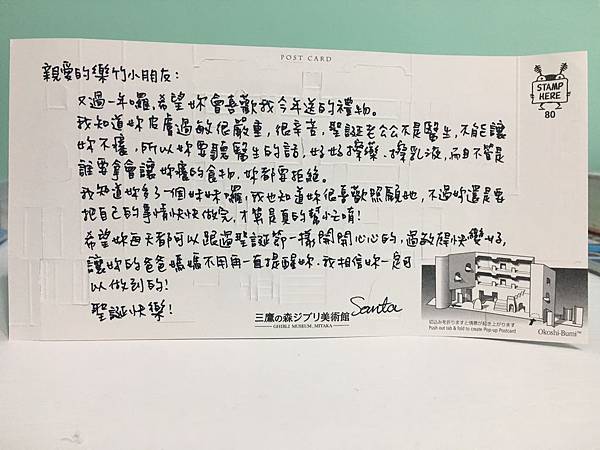 POST CARD
STAMP
HERE
80
親愛的樂竹小朋友：
又過一年囉，希望妳會喜歡我今年送的禮物。
我知道妳皮膚過敏很嚴重，很辛苦，聖誕老公公不是醫生，不能讓
妳不癢，所以妳要聽醫生的話，好好擦藥、擦乳液，而且不管是
誰要拿會讓妳癢的食物，妳都要拒絕。
我知道妳多了一個妹妹囉，我也知道妳很喜歡照顧她，不過妳還是要
把自己的事情快快做完，才算是真的幫忙唷！
希望妳每天都可以跟過聖誕節一樣開開心心的，過敏趕快變好，
讓妳的爸爸媽媽不用再一直提醒妳，我相信妳一定可
以做到的！
聖誕快樂！
Santa
三鷹の森ジブリ美術館
GHIBLI MUSEUM, MITAKA
切込みを折りますと情景が起き上がります
Push out tab & fold to create Pop-up Postcard
Okoshi-Bumi™